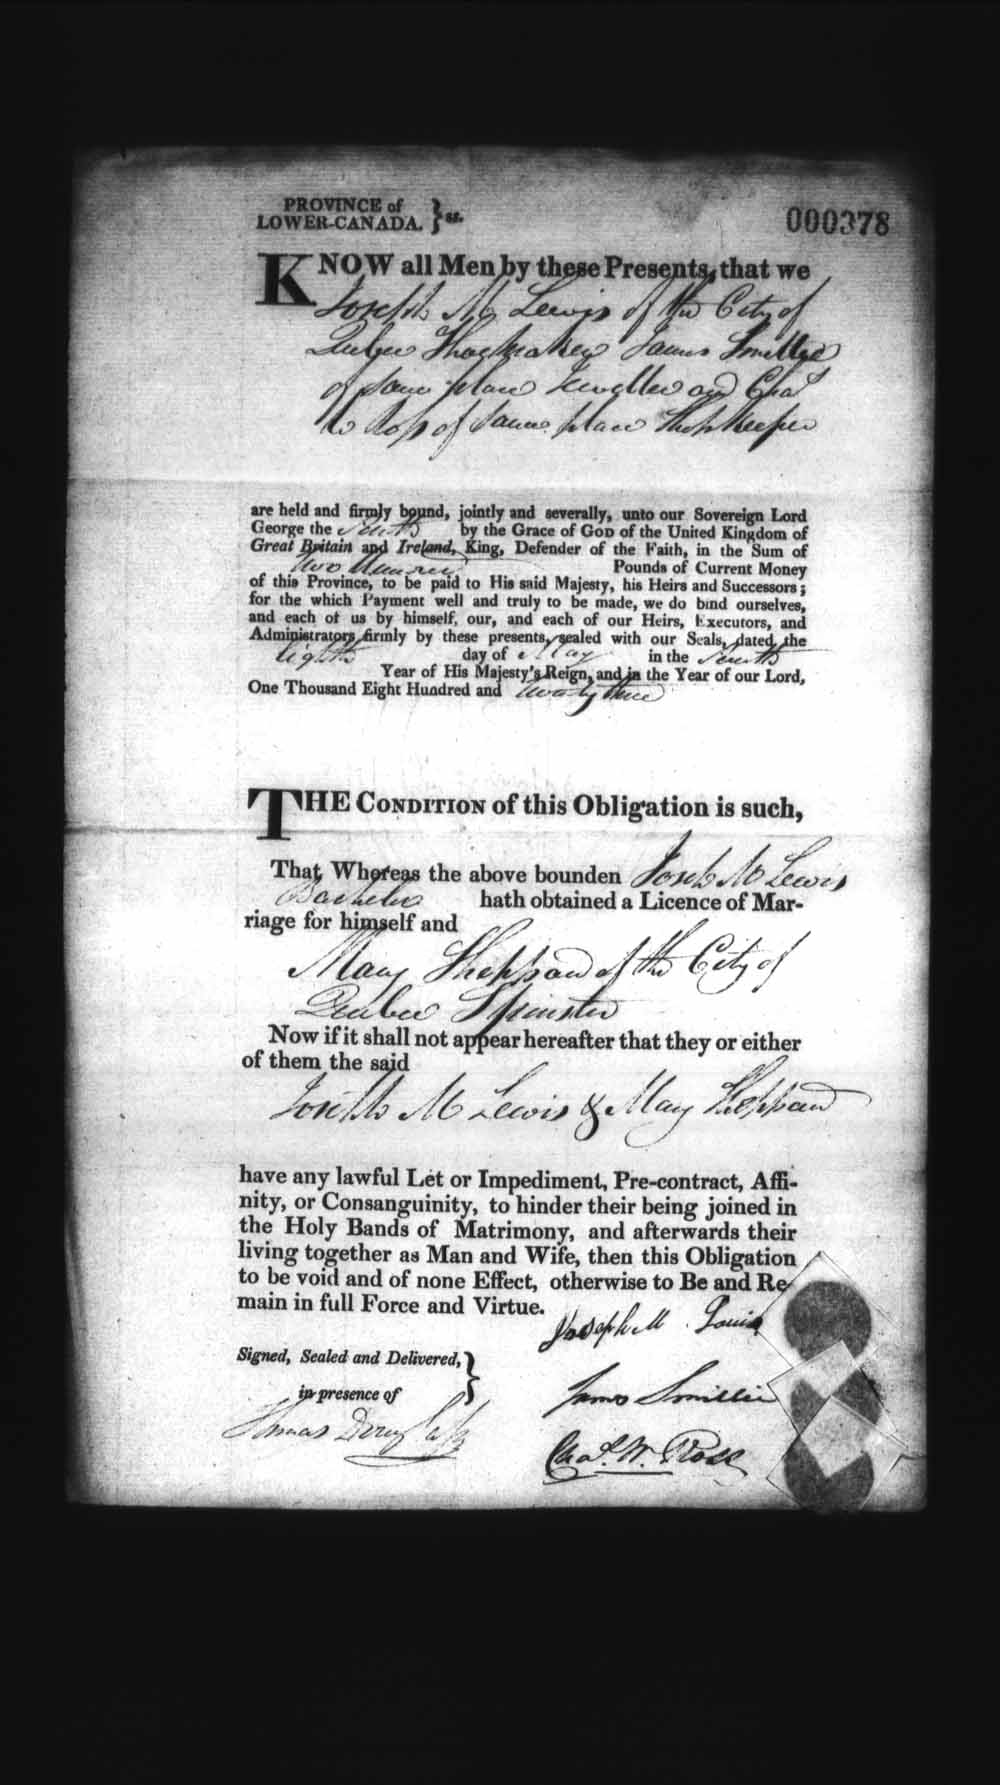 PROVINCE of
LOWER-CANADA. } ss.
000378
KNOW all Men by these Presents, that we
Joseph M Lewis of the City of
Quebec James Smillie
of same place Jeweller and Chas
W Ross of same place Shopkeeper
are held and firmly bound, jointly and severally, unto our Sovereign Lord
George the Fourth by the Grace of GOD of the United Kingdom of
Great Britain and Ireland, King, Defender of the Faith, in the Sum of
Two Hundred Pounds of Current Money
of this Province, to be paid to His said Majesty, his Heirs and Successors;
for the which Payment well and truly to be made, we do bind ourselves,
and each of us by himself, our, and each of our Heirs, Executors, and
Administrators firmly by these presents, sealed with our Seals, dated the
Eighth day of May in the Fourth
Year of His Majesty's Reign, and in the Year of our Lord,
One Thousand Eight Hundred and Twenty three
THE CONDITION of this Obligation is such,
That Whereas the above bounden Joseph M Lewis
Bachelor hath obtained a Licence of Mar-
riage for himself and
Mary Sheppard of the City of
Quebec Spinster
Now if it shall not appear hereafter that they or either
of them the said
Joseph M Lewis & Mary Sheppard
have any lawful Let or Impediment, Pre-contract, Affi-
nity, or Consanguinity, to hinder their being joined in
the Holy Bands of Matrimony, and afterwards their
living together as Man and Wife, then this Obligation
to be void and of none Effect, otherwise to Be and Re-
main in full Force and Virtue.
Joseph M Louis
Signed, Sealed and Delivered, }
in presence of
James Smillie
Thomas Douglass
Chas. W. Ross